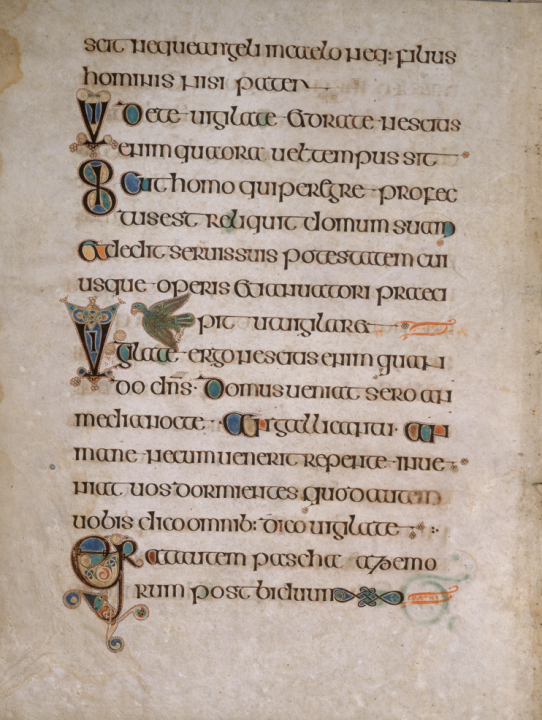 scit neque angeli in caelo neq: filius
hominis nisi pater
Videte uigilate & orate nescitis
enim quando ora uel tempus sit
Sicut homo qui peregre profec
tus est reliquit domum suam
& dedit seruis suis potestatem cui
usque operis & ianuatori praeci
pit ut uigilare
Uigilate ergo nescitis enim quan
do dns domus ueniat sero an
media nocte an galli cantu an
mane ne cum uenerit repente inue
niat uos dormientes quod autem
uobis dico omnib: dico uigilate
Erat autem pascha & azemo
rum post biduum